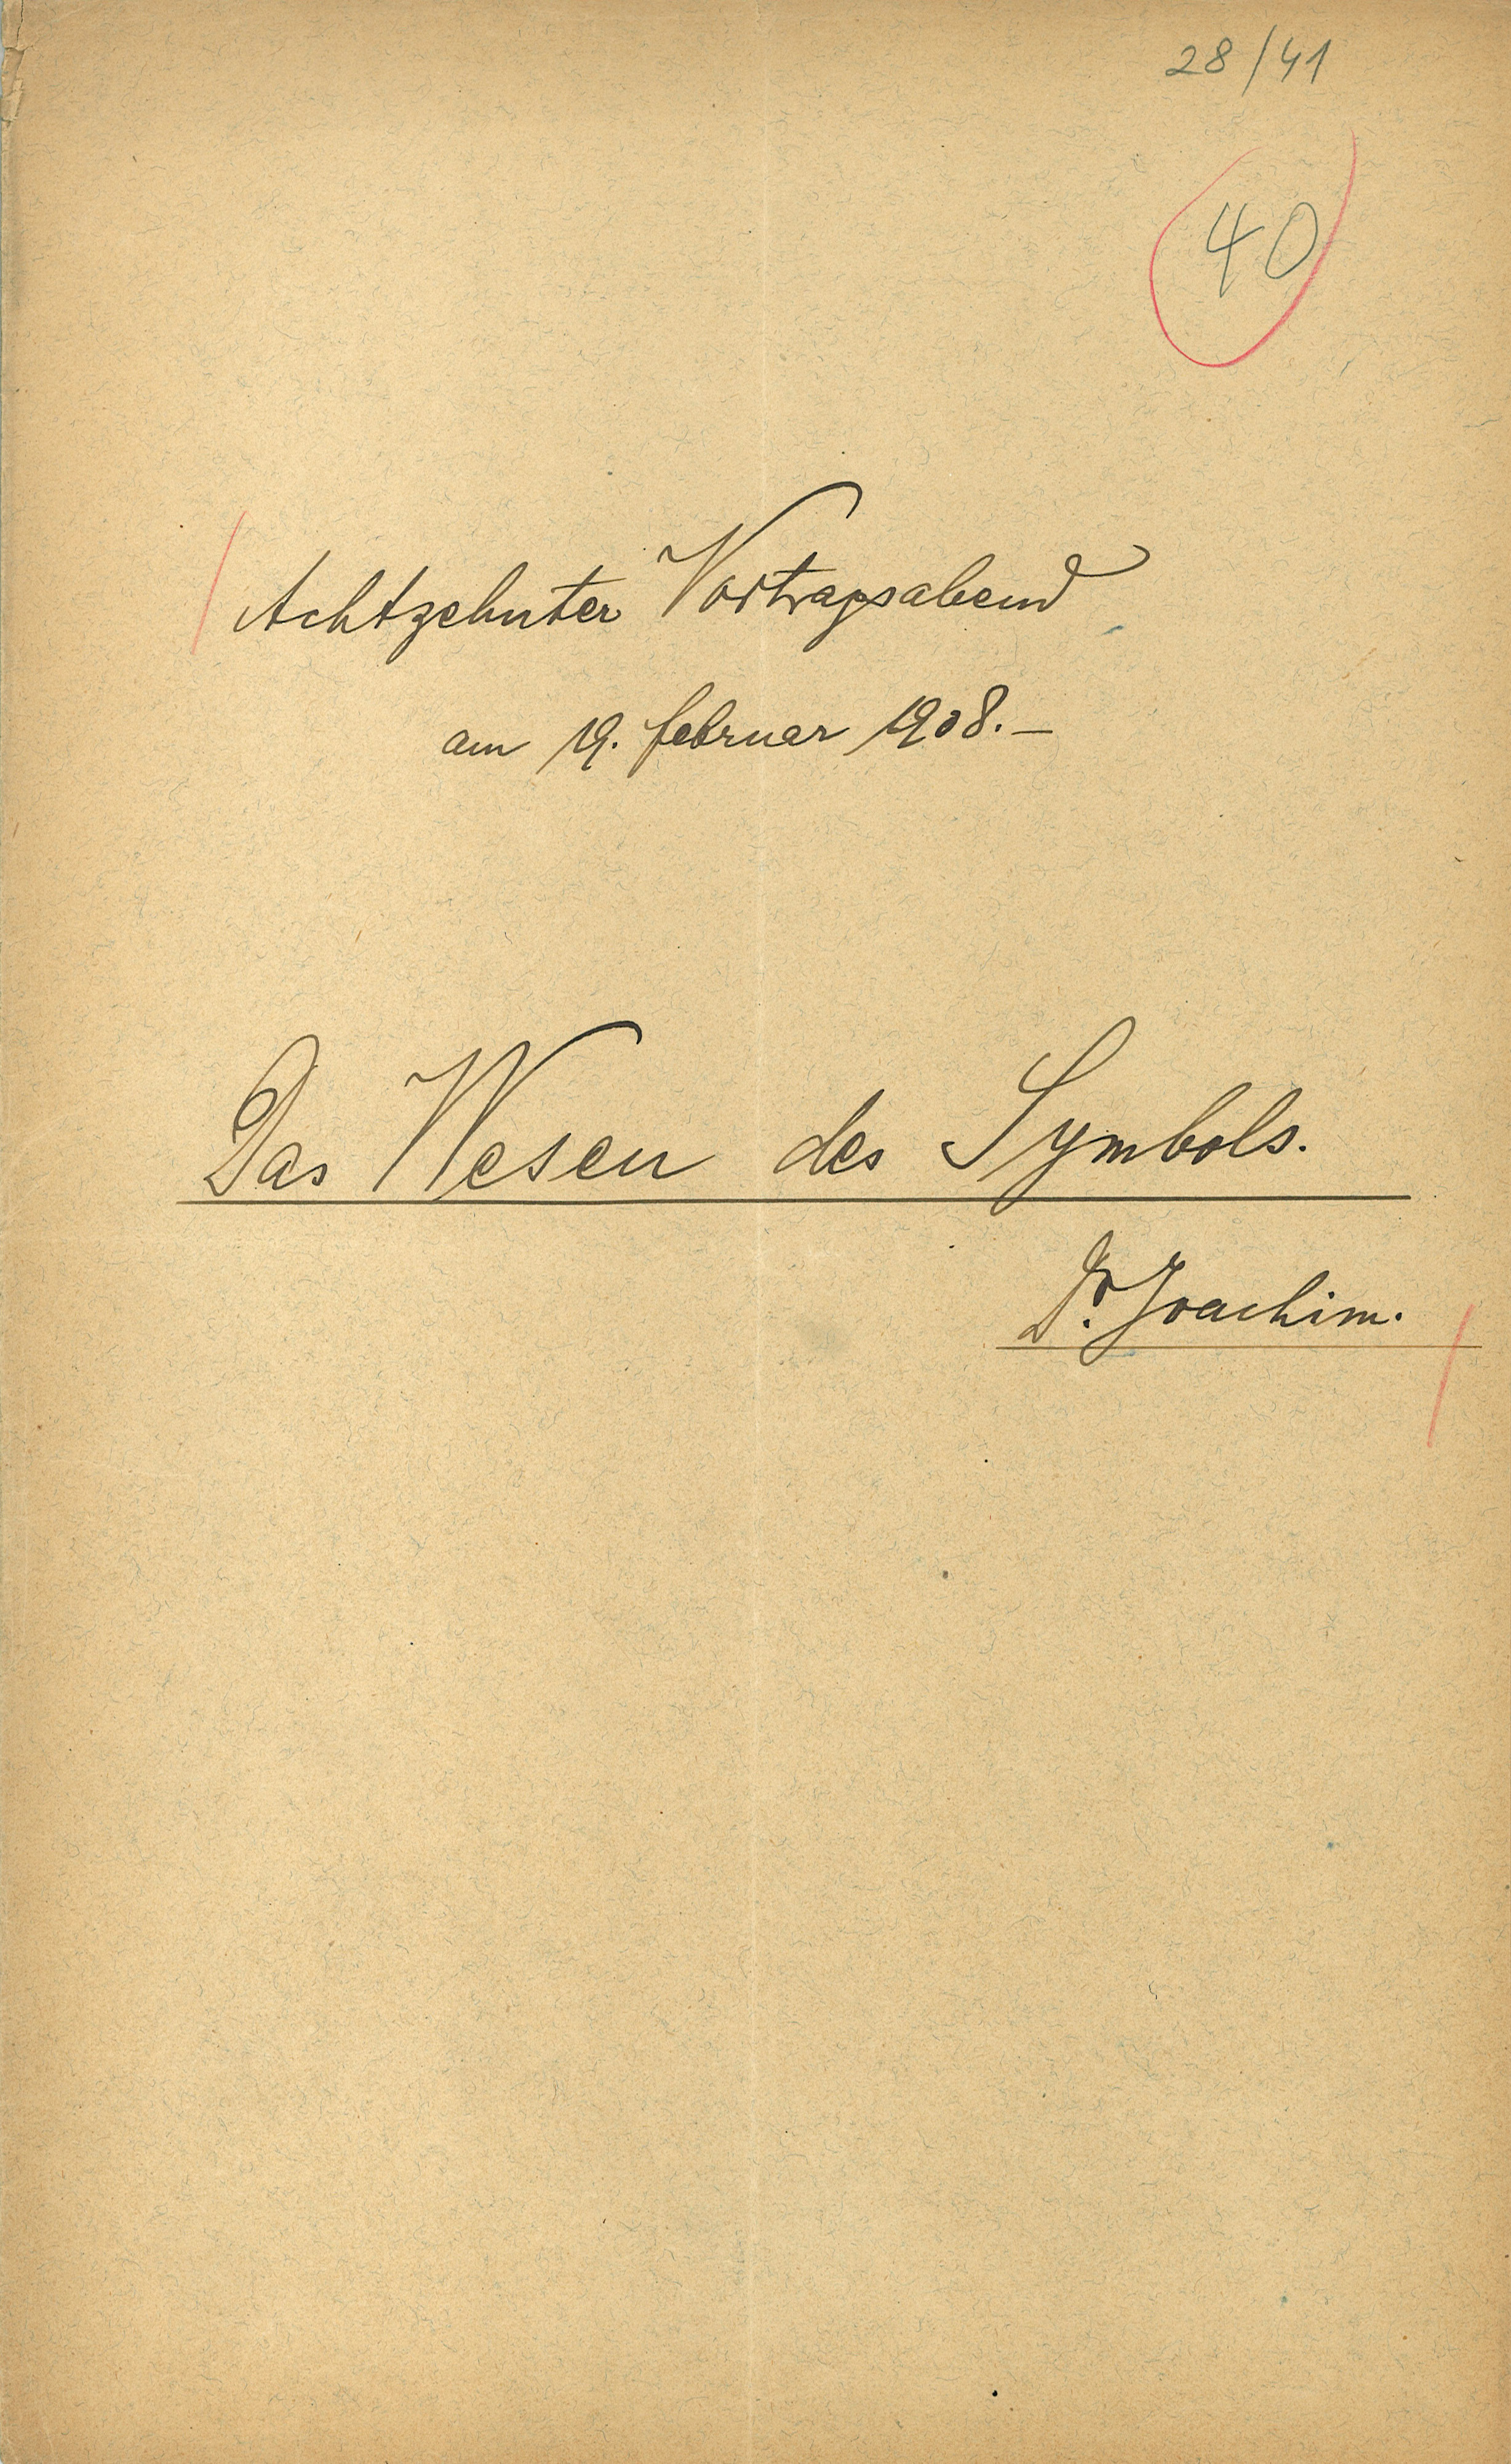 28/41
40
Achtzehnter Vortragsabend
am 19. februar 1908.–
Das Wesen des Symbols.
Dr. Joachim.